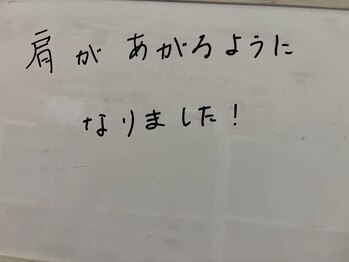 肩があがるように
なりました!